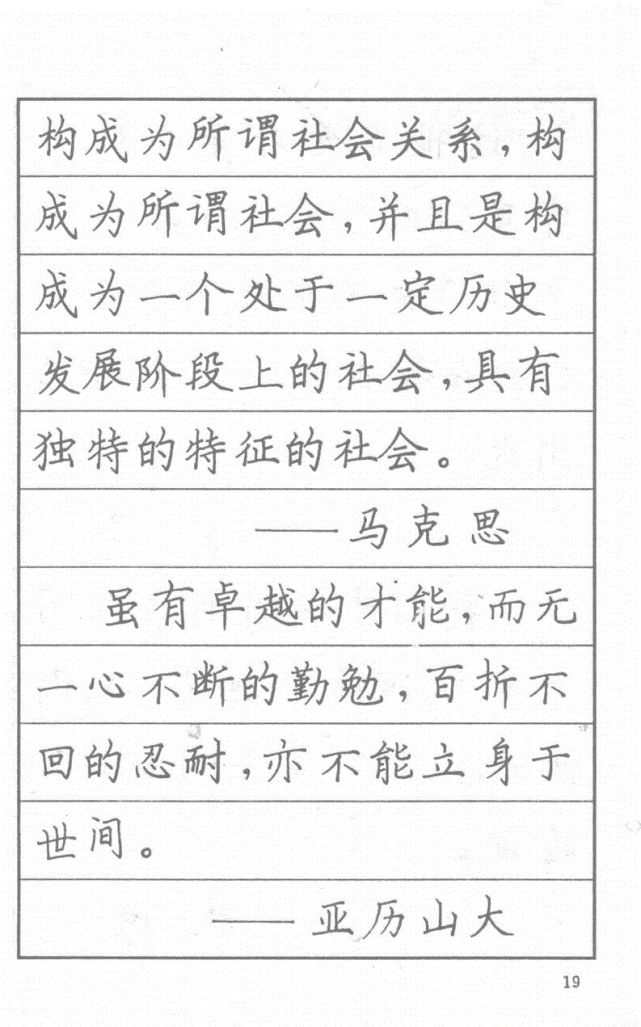 构成为所谓社会关系，构
成为所谓社会，并且是构
成为一个处于一定历史
发展阶段上的社会，具有
独特的特征的社会。
——马克思
虽有卓越的才能，而无
一心不断的勤勉，百折不
回的忍耐，亦不能立身于
世间。
——亚历山大
19